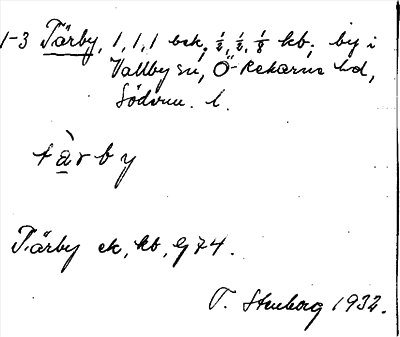 1-3 Tärby, 1, 1, 1 bek. ½, ½, ⅛ kb. by i
Vallby sn, Ö-Rekarne hd,
Södvm. l.
tàrby
Tärby ek, kb, g 74.
T. Stenborg 1932.